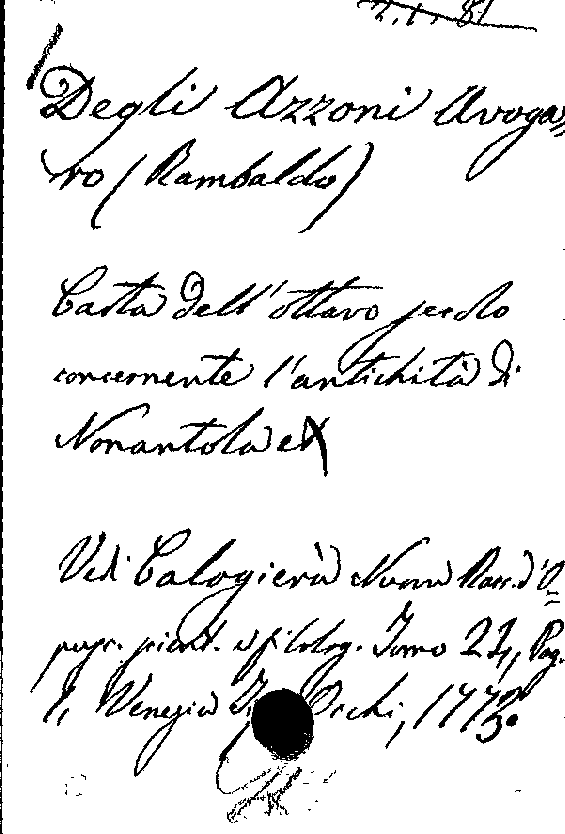 Degli Azzoni Avoga=
ro (Rambaldo)
Carta dell'ottavo secolo
concernente l'antichità di
Nonantola
Vedi Calogierà Nuova Racc. d'O=
pusc. scient. e filolog. Tomo 24, Pag.
1, Venezia Occhi, 1773.